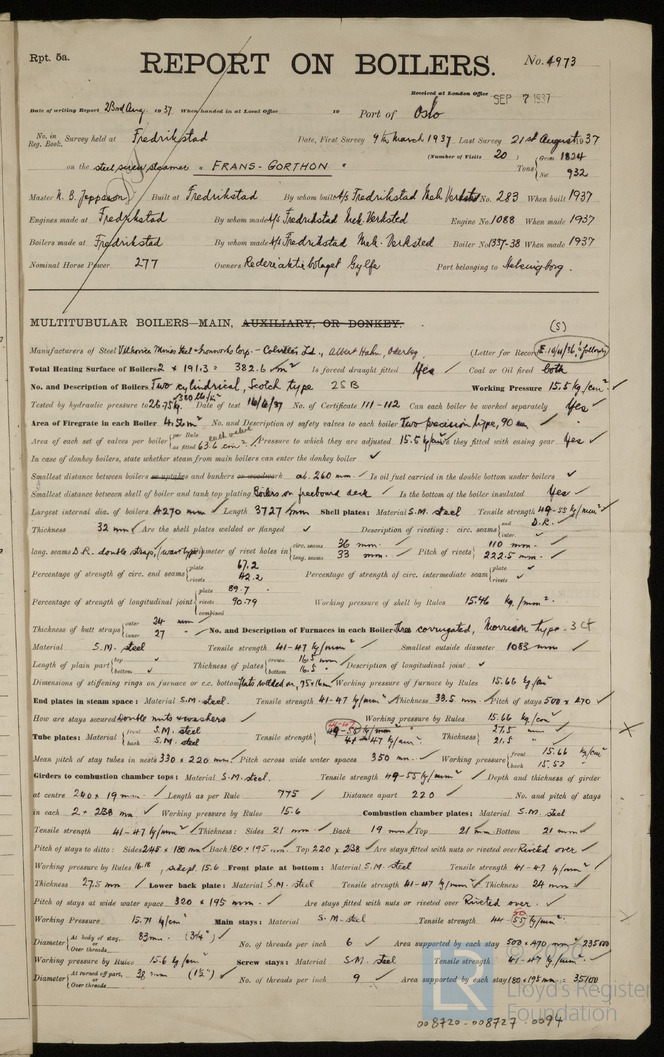 Rpt. 5a.
REPORT ON BOILERS.
No. 4973
Received at London Office SEP 7 1937
Date of writing Report 23rd Aug. 1937 When handed in at Local Office 19 Port of Oslo
No. in Reg. Book. Survey held at Fredrikstad Date, First Survey 9th March 1937 Last Survey 21st August 1937
(Number of Visits 20) Tons Gross 1824 Net 932
on the steel screw steamer "FRANS-GORTHON"
Master N. B. Jeppsson Built at Fredrikstad By whom built A/s Fredrikstad Mek. Verksted Yard No. 283 When built 1937
Engines made at Fredrikstad By whom made A/s Fredrikstad Mek. Verksted Engine No. 1088 When made 1937
Boilers made at Fredrikstad By whom made A/s Fredrikstad Mek. Verksted Boiler No. 1337-38 When made 1937
Nominal Horse Power 277 Owners Rederiaktiebolaget Gylfe Port belonging to Helsingborg.
MULTITUBULAR BOILERS—MAIN, AUXILIARY, OR DONKEY.
(S)
Manufacturers of Steel Vitkovice Mines Steel & Ironworks Corp. - Colvilles Ld., Albert Hahn, Oderberg. (Letter for Record
Total Heating Surface of Boilers 2 × 191.3 = 382.6 m² Is forced draught fitted Yes Coal or Oil fired both
No. and Description of Boilers Two cylindrical, Scotch type 2SB Working Pressure 15.5 kg./cm²
Tested by hydraulic pressure to 26.75 kg. Date of test 16/6/37 No. of Certificate 111-112 Can each boiler be worked separately Yes
Area of Firegrate in each Boiler 4.56 m² No. and Description of safety valves to each boiler Two precision type, 90 mm
Area of each set of valves per boiler per Rule as fitted 63.6 cm² each valve Pressure to which they are adjusted 15.5 kg/cm² Are they fitted with easing gear Yes
In case of donkey boilers, state whether steam from main boilers can enter the donkey boiler
Smallest distance between boilers or uptakes and bunkers or woodwork ab. 260 mm. Is oil fuel carried in the double bottom under boilers
Smallest distance between shell of boiler and tank top plating Boilers on freeboard deck Is the bottom of the boiler insulated Yes
Largest internal dia. of boilers 4270 mm Length 3727 mm Shell plates: Material S.M. steel Tensile strength 49-55 kg/mm²
Thickness 32 mm Are the shell plates welded or flanged Description of riveting: circ. seams end D.R. inter.
long. seams D.R. double straps, Diameter of rivet holes in circ. seams 36 mm. long. seams 33 mm. Pitch of rivets 110 mm. 222.5 mm.
Percentage of strength of circ. end seams plate 67.2 rivets 42.2 Percentage of strength of circ. intermediate seam plate rivets
Percentage of strength of longitudinal joint plate 89.7 rivets 90.79 combined Working pressure of shell by Rules 15.46 kg./mm².
Thickness of butt straps outer 24 mm inner 27 " No. and Description of Furnaces in each Boiler Three corrugated, Morrison type. 3 Cf
Material S.M. steel Tensile strength 41-47 kg/mm² Smallest outside diameter 1083 mm
Length of plain part top bottom Thickness of plates crown 16.5 mm bottom 16.5 " Description of longitudinal joint
Dimensions of stiffening rings on furnace or c.c. bottom flats welded on, 75×16 mm Working pressure of furnace by Rules 15.66 kg/cm²
End plates in steam space: Material S.M. steel. Tensile strength 41-47 kg/mm² Thickness 33.5 mm. Pitch of stays 500 × 470
How are stays secured Double nuts & washers Working pressure by Rules 15.66 kg/cm²
Tube plates: Material front S.M. steel back S.M. steel Tensile strength 41-47 49-55 kg/mm² 41-47 kg/mm² Thickness 27.5 mm 21.5 "
Mean pitch of stay tubes in nests 330 × 220 mm. Pitch across wide water spaces 350 mm. Working pressure front 15.66 kg/cm² back 15.52 "
Girders to combustion chamber tops: Material S.M. steel. Tensile strength 49-55 kg/mm² Depth and thickness of girder
at centre 240 × 19 mm. Length as per Rule 775 Distance apart 220 No. and pitch of stays
in each 2 × 238 mm Working pressure by Rules 15.6 Combustion chamber plates: Material S.M. steel
Tensile strength 41-47 kg/mm² Thickness: Sides 21 mm. Back 19 mm Top 21 mm. Bottom 21 mm
Pitch of stays to ditto: Sides 245 × 180 mm Back 180 × 195 mm. Top 220 × 238 Are stays fitted with nuts or riveted over Riveted over
Working pressure by Rules 16.18, side pl. 15.6 Front plate at bottom: Material S.M. steel Tensile strength 41-47 kg/mm²
Thickness 27.5 mm Lower back plate: Material S.M. steel Tensile strength 41-47 kg/mm² Thickness 24 mm
Pitch of stays at wide water space 320 × 195 mm. Are stays fitted with nuts or riveted over Riveted over.
Working Pressure 15.71 kg/cm² Main stays: Material S.M. steel Tensile strength 44-55 50 kg/mm².
Diameter At body of stay, or Over threads 83 mm. (3¼") No. of threads per inch 6 Area supported by each stay 500 × 470 mm² 235000
Working pressure by Rules 15.6 kg/cm² Screw stays: Material S.M. steel Tensile strength 41-47 kg/mm².
Diameter At turned off part, or Over threads 38 mm. (1½") No. of threads per inch 9 Area supported by each stay 180 × 195 mm = 35100
LR
Lloyd's Register Foundation
008720-008727-0094